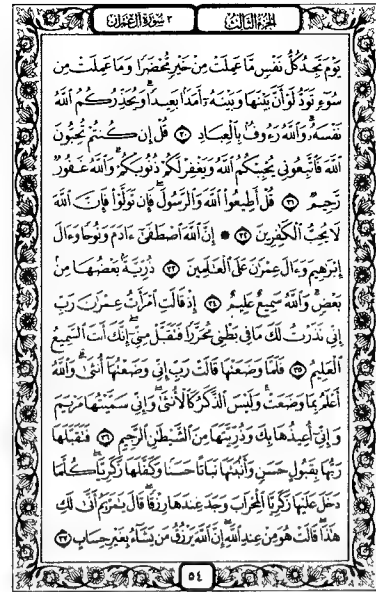 الجزء الثالث
٣ سورة آل عمران
يَوْمَ تَجِدُ كُلُّ نَفْسٍ مَّا عَمِلَتْ مِنْ خَيْرٍ مُّحْضَرًا وَمَا عَمِلَتْ مِن
سُوٓءٍ تَوَدُّ لَوْ أَنَّ بَيْنَهَا وَبَيْنَهُۥٓ أَمَدًۢا بَعِيدًا ۗ وَيُحَذِّرُكُمُ ٱللَّهُ
نَفْسَهُۥ ۗ وَٱللَّهُ رَءُوفٌۢ بِٱلْعِبَادِ ٣٠ قُلْ إِن كُنتُمْ تُحِبُّونَ
ٱللَّهَ فَٱتَّبِعُونِى يُحْبِبْكُمُ ٱللَّهُ وَيَغْفِرْ لَكُمْ ذُنُوبَكُمْ ۗ وَٱللَّهُ غَفُورٌ
رَّحِيمٌ ٣١ قُلْ أَطِيعُوا۟ ٱللَّهَ وَٱلرَّسُولَ ۖ فَإِن تَوَلَّوْا۟ فَإِنَّ ٱللَّهَ
لَا يُحِبُّ ٱلْكَٰفِرِينَ ٣٢ ۞ إِنَّ ٱللَّهَ ٱصْطَفَىٰٓ ءَادَمَ وَنُوحًا وَءَالَ
إِبْرَٰهِيمَ وَءَالَ عِمْرَٰنَ عَلَى ٱلْعَٰلَمِينَ ٣٣ ذُرِّيَّةًۢ بَعْضُهَا مِنۢ
بَعْضٍ ۗ وَٱللَّهُ سَمِيعٌ عَلِيمٌ ٣٤ إِذْ قَالَتِ ٱمْرَأَتُ عِمْرَٰنَ رَبِّ
إِنِّى نَذَرْتُ لَكَ مَا فِى بَطْنِى مُحَرَّرًا فَتَقَبَّلْ مِنِّىٓ ۖ إِنَّكَ أَنتَ ٱلسَّمِيعُ
ٱلْعَلِيمُ ٣٥ فَلَمَّا وَضَعَتْهَا قَالَتْ رَبِّ إِنِّى وَضَعْتُهَآ أُنثَىٰ وَٱللَّهُ
أَعْلَمُ بِمَا وَضَعَتْ وَلَيْسَ ٱلذَّكَرُ كَٱلْأُنثَىٰ ۖ وَإِنِّى سَمَّيْتُهَا مَرْيَمَ
وَإِنِّىٓ أُعِيذُهَا بِكَ وَذُرِّيَّتَهَا مِنَ ٱلشَّيْطَٰنِ ٱلرَّجِيمِ ٣٦ فَتَقَبَّلَهَا
رَبُّهَا بِقَبُولٍ حَسَنٍ وَأَنۢبَتَهَا نَبَاتًا حَسَنًا وَكَفَّلَهَا زَكَرِيَّا ۖ كُلَّمَا
دَخَلَ عَلَيْهَا زَكَرِيَّا ٱلْمِحْرَابَ وَجَدَ عِندَهَا رِزْقًا ۖ قَالَ يَٰمَرْيَمُ أَنَّىٰ لَكِ
هَٰذَا ۖ قَالَتْ هُوَ مِنْ عِندِ ٱللَّهِ ۖ إِنَّ ٱللَّهَ يَرْزُقُ مَن يَشَآءُ بِغَيْرِ حِسَابٍ ٣٧
٥٤